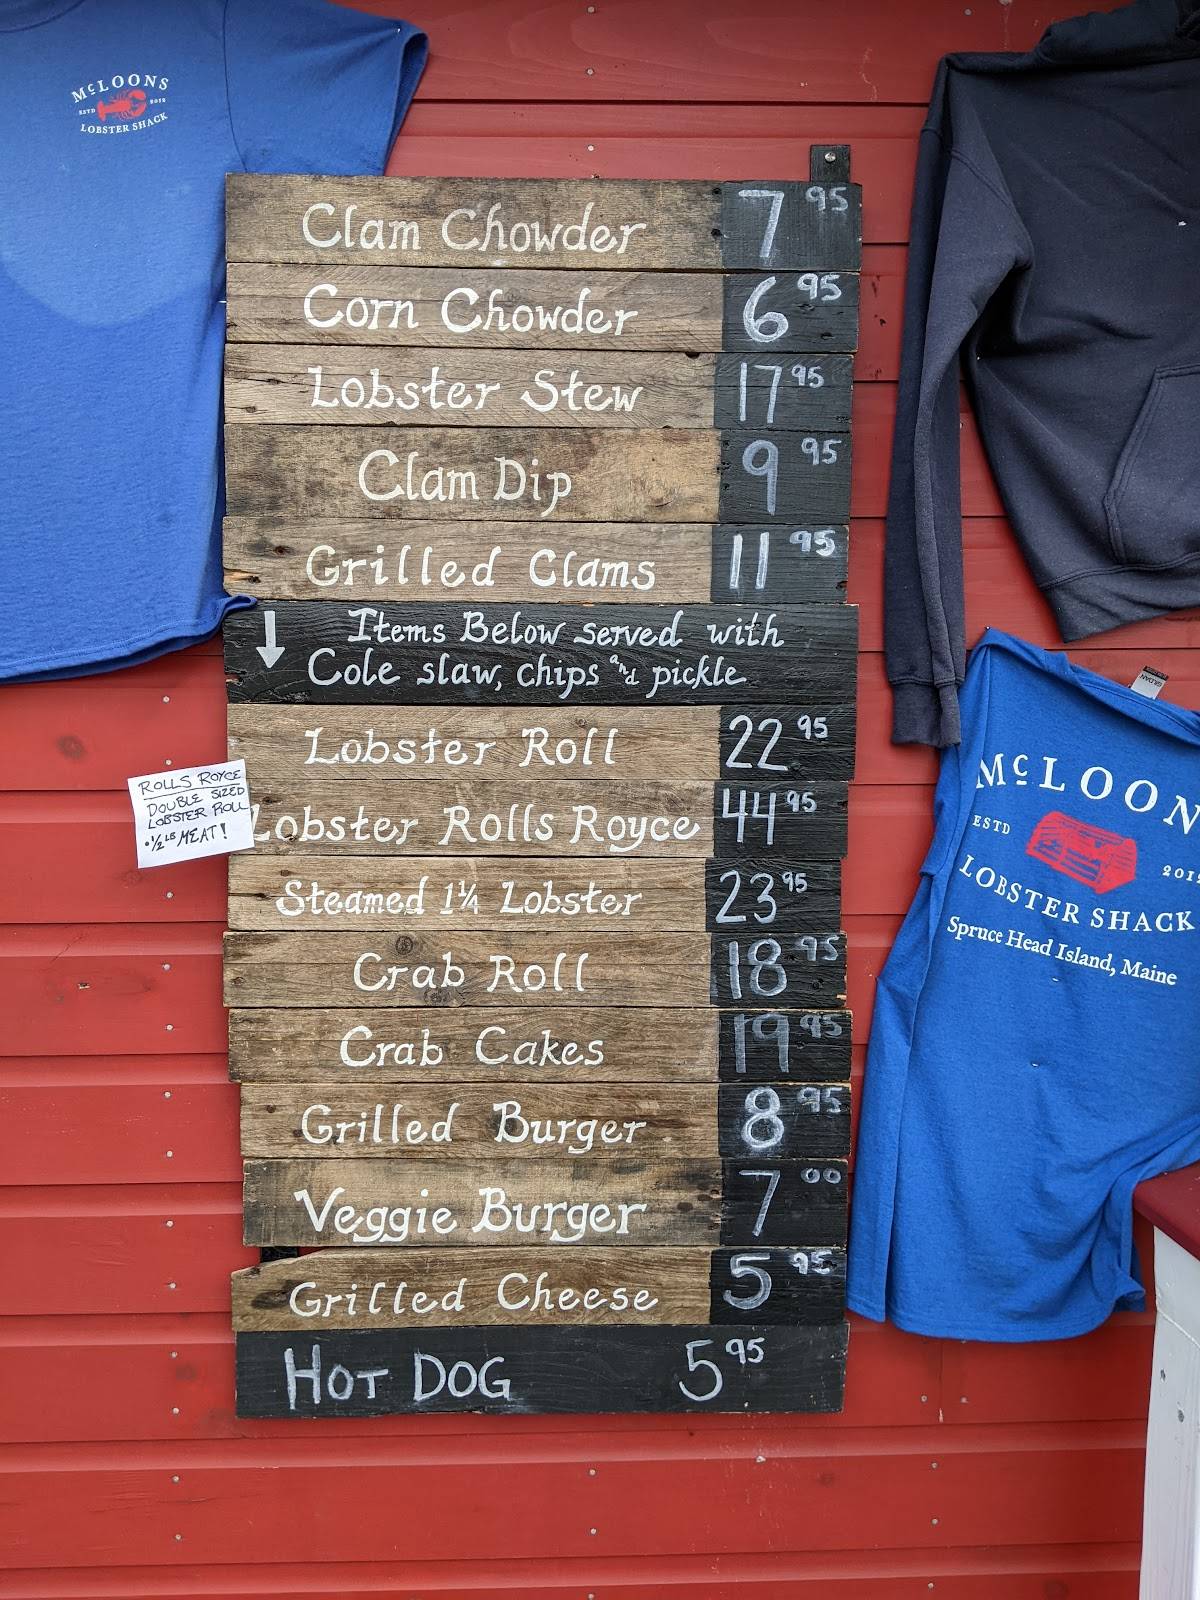 McLOONS
ESTD 2012
LOBSTER SHACK
Clam Chowder 7 95
Corn Chowder 6 95
Lobster Stew 17 95
Clam Dip 9 95
Grilled Clams 11 95
↓ Items Below served with
Cole slaw, chips and pickle
Lobster Roll 22 95
Lobster Rolls Royce 44 95
Steamed 1 1/4 Lobster 23 95
Crab Roll 18 95
Crab Cakes 19 95
Grilled Burger 8 95
Veggie Burger 7 00
Grilled Cheese 5 95
HOT DOG 5 95
ROLLS ROYCE
DOUBLE SIZED
LOBSTER ROLL
• 1/2 LB MEAT!
GILDAN
McLOON
ESTD 2012
LOBSTER SHACK
Spruce Head Island, Maine